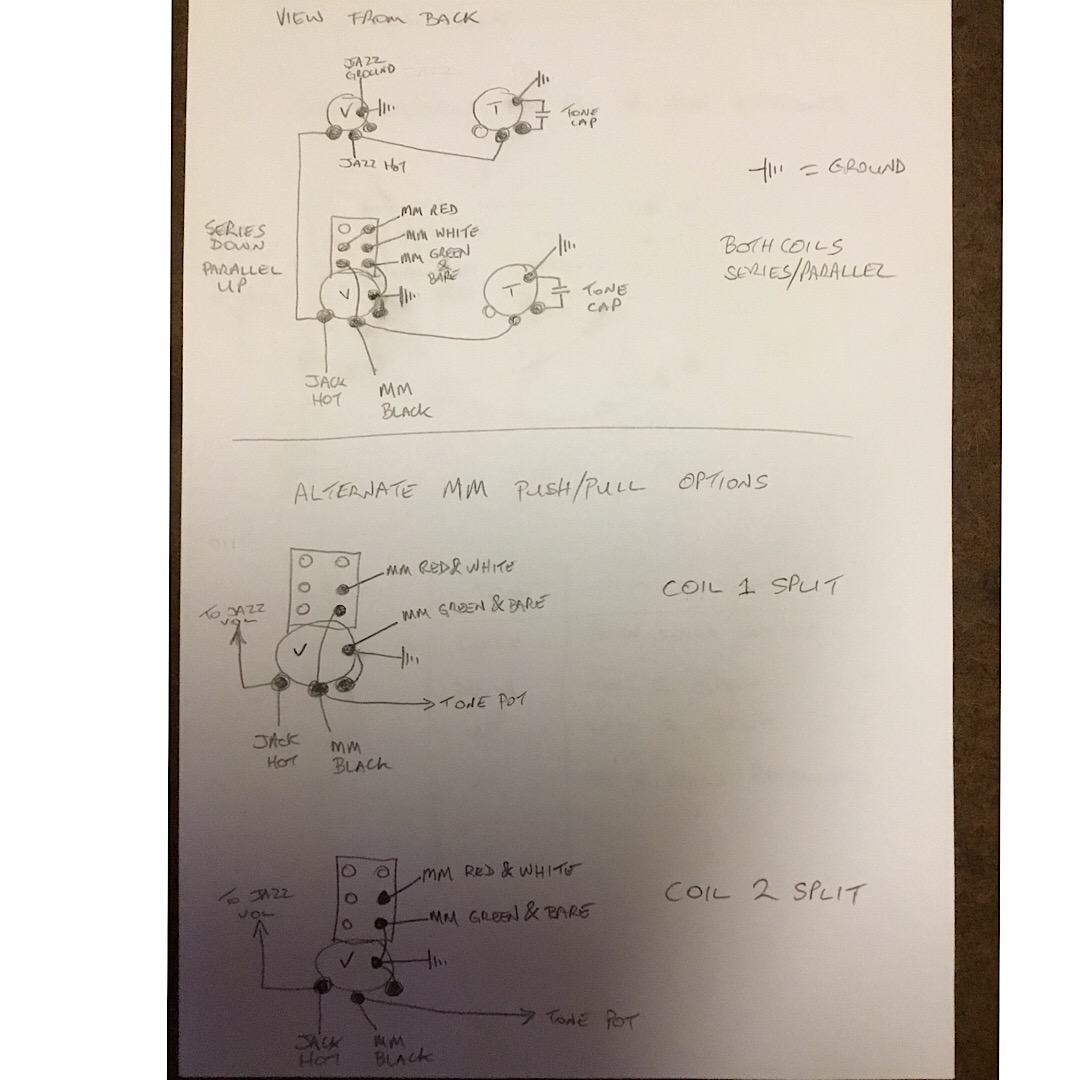 VIEW FROM BACK
JAZZ
GROUND
V
T
TONE
CAP
JAZZ HOT
= GROUND
SERIES
DOWN
PARALLEL
UP
MM RED
MM WHITE
MM GREEN
&
BARE
V
T
TONE
CAP
BOTH COILS
SERIES/PARALLEL
JACK
HOT
MM
BLACK
ALTERNATE MM PUSH/PULL OPTIONS
MM RED & WHITE
COIL 1 SPLIT
TO JAZZ
VOL
MM GREEN & BARE
V
TONE POT
JACK
HOT
MM
BLACK
MM RED & WHITE
COIL 2 SPLIT
TO JAZZ
VOL
MM GREEN & BARE
V
TONE POT
JACK
HOT
MM
BLACK